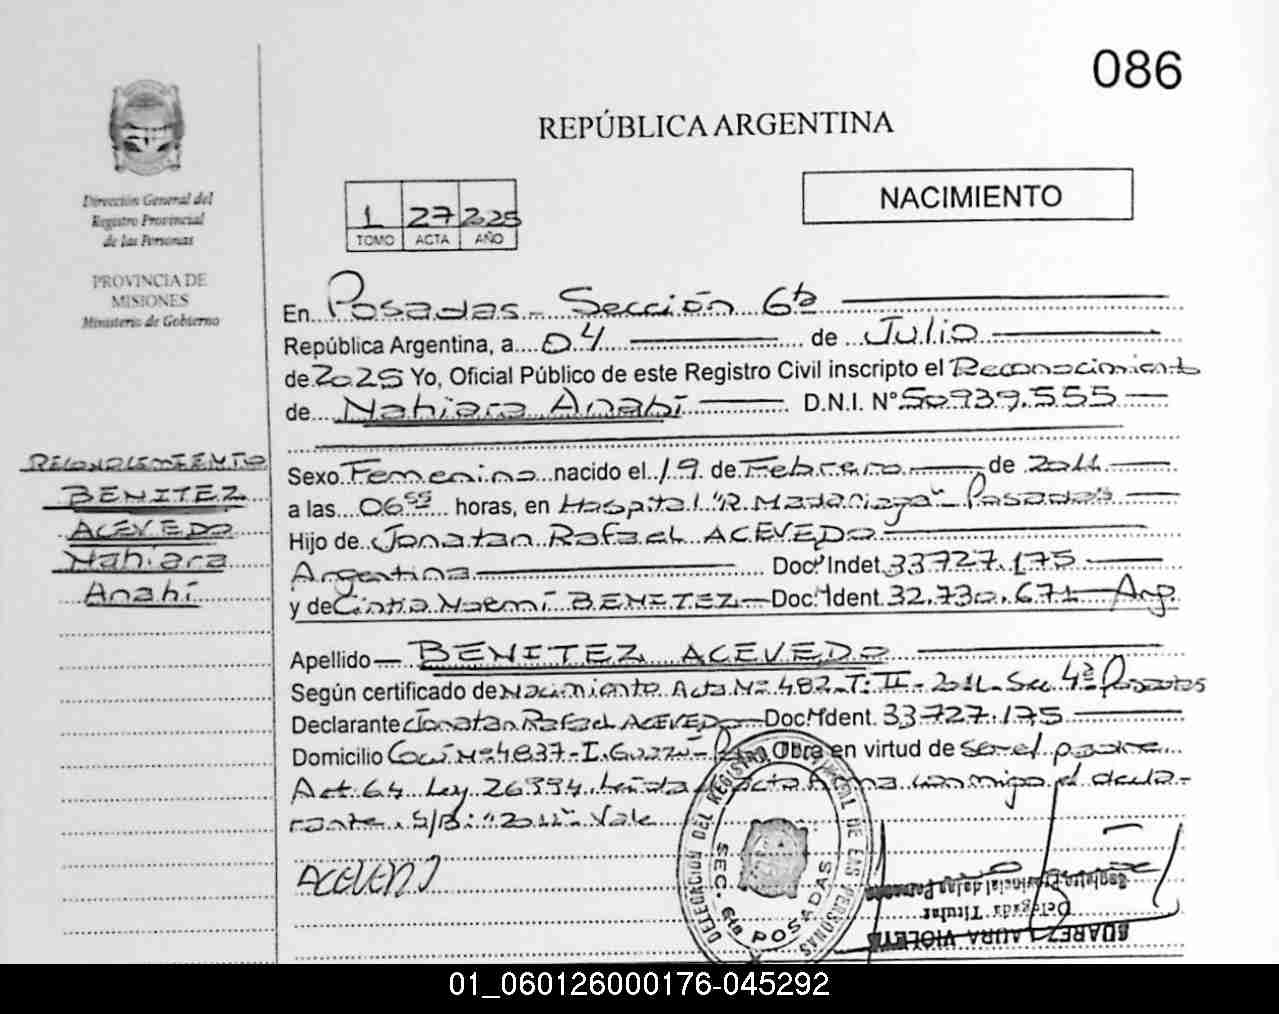 086
REPÚBLICA ARGENTINA
Dirección General del
Registro Provincial
de las Personas
PROVINCIA DE
MISIONES
Ministerio de Gobierno
NACIMIENTO
1 27 2025
TOMO ACTA AÑO
En Posadas - Sección 6ta
República Argentina, a 04 de Julio
de 2025 Yo, Oficial Público de este Registro Civil inscripto el Reconocimiento
de Nahiara Anahí D.N.I. N° 50.939.555
RECONOCIMIENTO
BENITEZ
ACEVEDO
Nahiara
Anahí
Sexo Femenino nacido el 19 de Febrero de 2011
a las 06 horas, en Hospital "R. Madariaga" Posadas
Hijo de Jonatan Rafael ACEVEDO
Argentina Doc. Indet. 33.727.175
y de Cintia Noemí BENITEZ Doc. Ident. 32.730.671 Arg.
Apellido BENITEZ ACEVEDO
Según certificado de Nacimiento Acta Nº 482-T: II-2011-Sec. 4ª Posadas
Declarante Jonatan Rafael ACEVEDO Doc. Ident. 33.727.175
Domicilio Nº 4837-I. Obra en virtud de ser el padre
Art. 64 Ley 26994 Leída acta firma conmigo el decla-
rante. S/B: "2011" Vale
ACEVEDO
DELEGACION DEL REGISTRO PROVINCIAL DE LAS PERSONAS
SEC. 6ta POSADAS
SUAREZ LAURA VIOLETA
Delegada Titular
Registro Provincial de las Personas
01_060126000176-045292